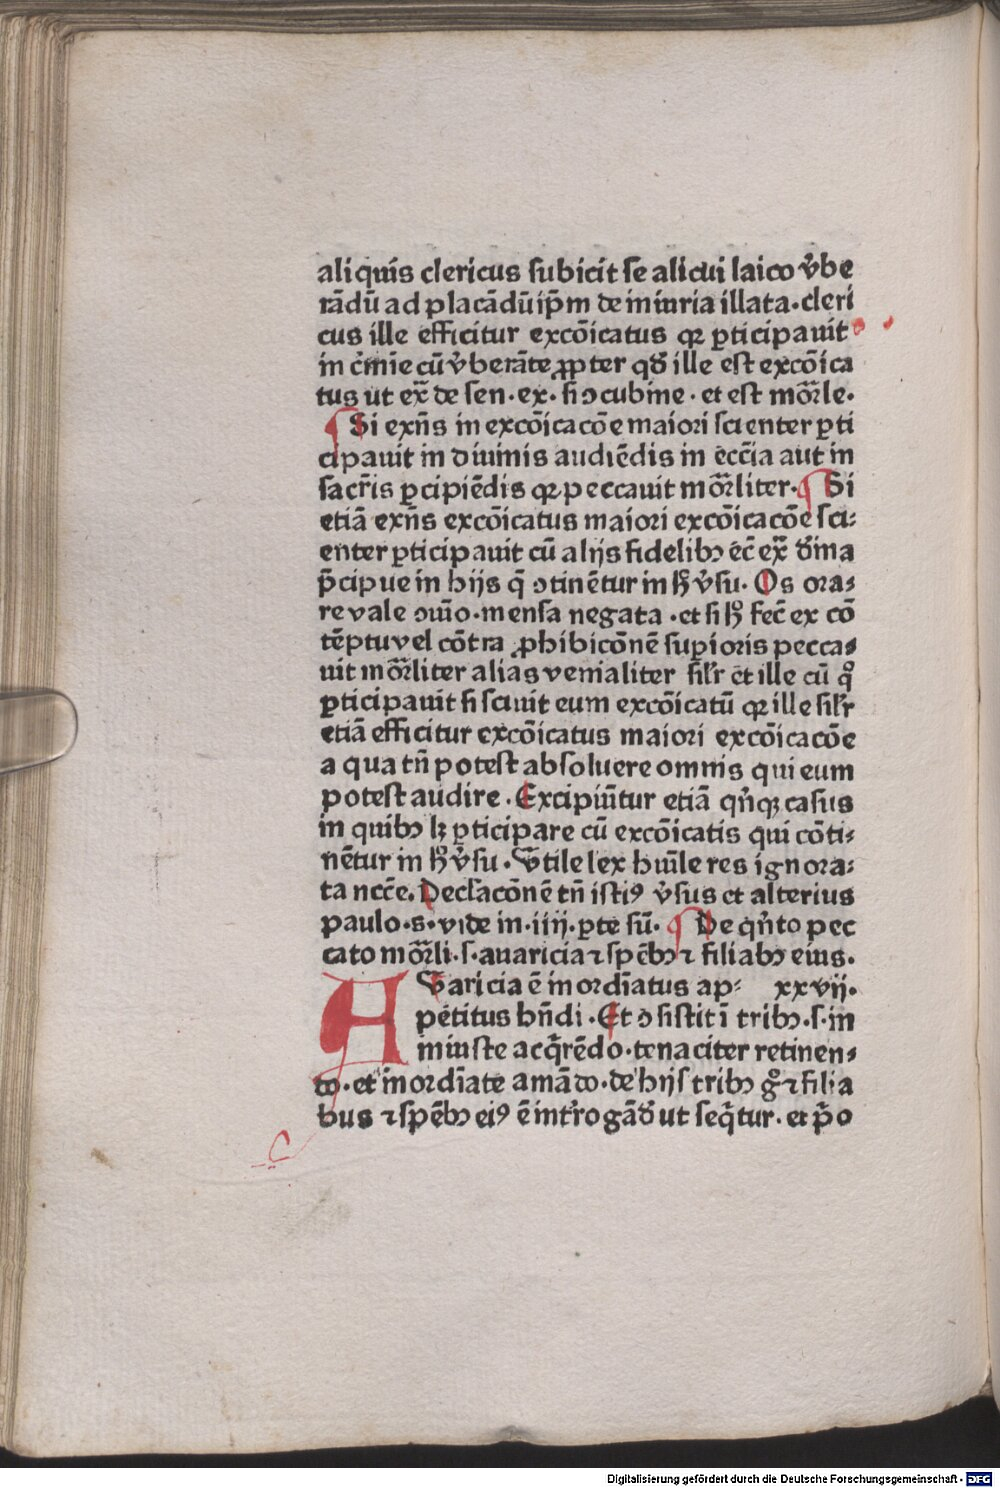 aliquis clericus subicit se alicui laico v̄be
rādū ad placādū ip̄m de iniuria illata·cleri
cus ille efficitur excōicatus qꝛ ꝑticipauit
in c̄mīe cū v̄berāte ꝓpter qd̄ ille est excōica
tus ut ex̄ de sen·ex·si ↄcubine·et est mōrle·
¶ Si exn̄s in excōicacōe maiori scienter ꝑti
cipauit in diuinis audiēdis in ecc̄ia aut in
sacr̄is ꝑcipiēdis qꝛ peccauit mōrliter·¶ Si
etiā exn̄s excōicatus maiori excōicacōe sci⸗
enter ꝑticipauit cū alijs fidelibꝫ ēc̄ ex̄ d̄ina
p̄cipue in hijs q̄ ↄtinētur in hͦ v̄su· Os ora⸗
re vale ↄīuo·mensa negata·et si hͦ fec̄ ex cō
tēptu vel cōtra ꝓhibicōnē suꝑioris pecca⸗
uit mōrliter alias venialiter sil̄r et ille cū qͦ
ꝑticipauit si sciuit eum excōicatū qꝛ ille sil̄r
etiā efficitur excōicatus maiori excōicacōe
a qua tn̄ potest absoluere omnis qui eum
potest audire·Excipiūtur etiā qn̄qꝫ casus
in quibꝫ lꝫ ꝑticipare cū excōicatis qui cōti⸗
nētur in hͦ v̄su·Vtile lex hūile res ignora⸗
ta ncc̄e·Declacōnē tn̄ istiꝰ v̄sus et alterius
paulo·s·vide in·iiij·ꝑte sū·¶ De qn̄to pec
cato mōrli·s·auaricia ⁊ spēbꝫ ⁊ filiabꝫ eius·
AVaricia ē inordīatus ap⸗ xxvij·
petitus hn̄di·Et ↄsistit ī tribꝫ·s·in
iniuste acq̄rēdo·tenaciter retinen⸗
do·et īnordīate amādo·de hijs tribꝫ gͦ ⁊ filia
bus ⁊ spēbꝫ eiꝰ ē int̄rogād̄ ut seq̄tur·et p̄o
Digitalisierung gefördert durch die Deutsche Forschungsgemeinschaft - DFG